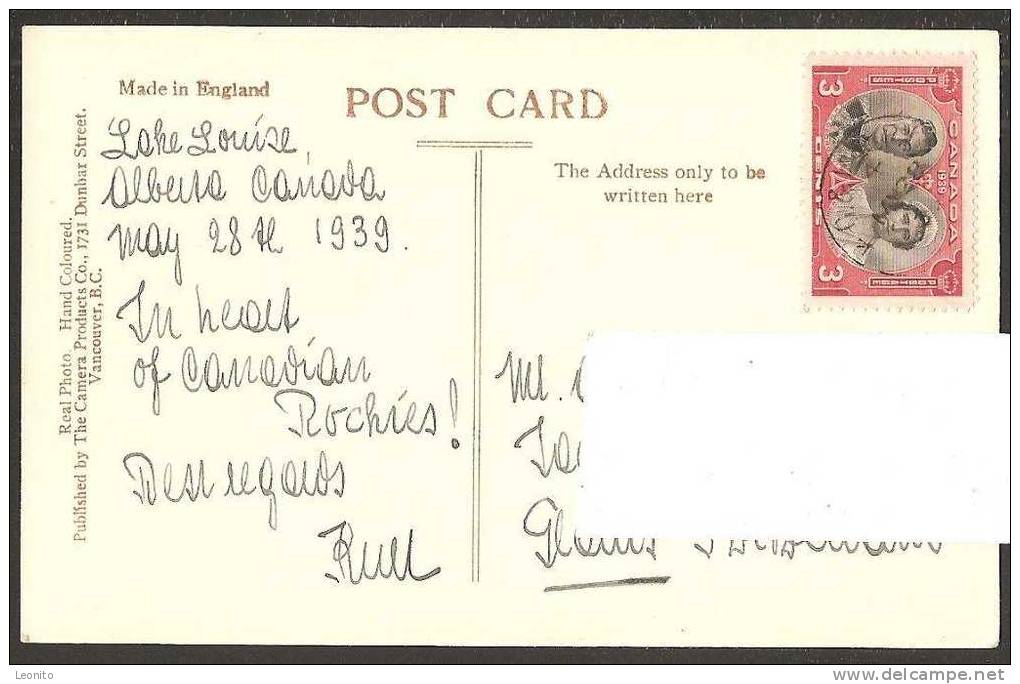 Made in England
POST CARD
Real Photo. Hand Coloured.
Published by The Camera Products Co., 1731 Dunbar Street.
Vancouver, B.C.
Lake Louise
Alberta Canada
May 28th 1939.
In heart
of Canadian
Rockies!
Best regards
The Address only to be
written here
POSTES CANADA POSTAGE
1939
3 CENTS 3
Mr.
Glarus
Leonito
www.delcampe.net